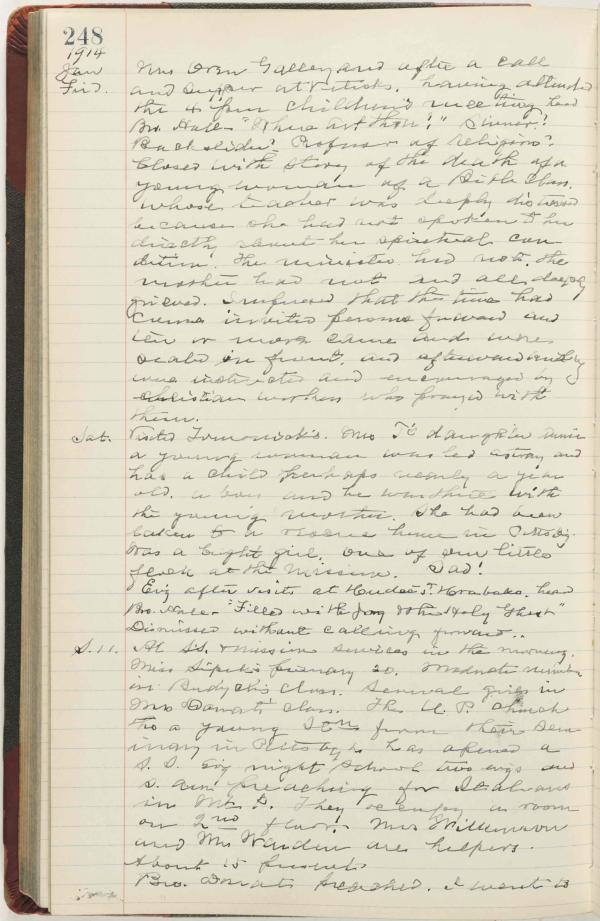 248
1914
Jan
Frid.
Mrs Oren Galley and after a call
and supper at having attended
the 4 p.m children's meeting heard
Bro. Hall - "Where art thou!" Sinner!
Backslider? Professor of Religion?
Closed with story of the death of a
young woman of a Bible Class.
whose teacher was deeply distressed
because she had not spoken to her
directly about her spiritual con
dition. The minister had not, the
mother had not and all deeply
grieved. that the time had
come invited persons forward and
ten or more came and were
seated in front, and afterward
were instructed and encouraged by
christian workers who prayed with
them.
Sat. Visited Mrs T's daughter
a young woman was led astray and
has a child perhaps nearly a year
old. a boy and he was there with
the young mother. She had been
taken to a rescue home in
Was a bright girl. One of our little
flock at the Mission. Sad!
Evg after visits at & heard
Bro. Hall - "Filled with Joy & the Holy Ghost"
Dismissed without calling forward..
S. 11. At S.S. & mission services in the morning.
Miss primary 20. Moderate number
in class. Several girls in
Mrs Donat's class. The U. P. Church
thro a young Itn from their Sem
inary in Pittsbgh has opened a
S. S. Evg night school two evgs and
S. a.m. preaching for Italians
in They occupy a room
on 2nd floor. Mrs Wilkinson
and Mrs Warden are helpers.
About 15 present.
Bro. Donat preached. I went to